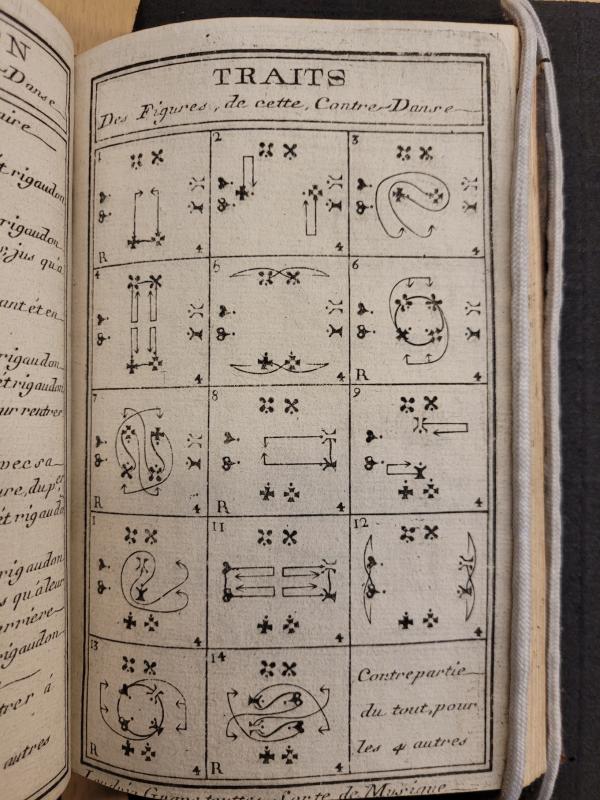 ON
-Danse
aire
et rigaudon
rigaudon
s, jus qu'à
ant été en
rigaudon
et rigaudon
ur rentrer
vec sa
ure, du p.er
et rigaudon
rigaudon
s qu'à leur
arrière
rigaudon
tres à
autres
TRAITS
Des Figures, de cette, Contre-Danse
1 2 3
R 4 4 4
4 5 6
4 4 R 4
7 8 9
R 4 R 4 4
1 11 12
4 4 4
13 14
R 4 R 4
Contrepartie
du tout, pour
les 4 autres